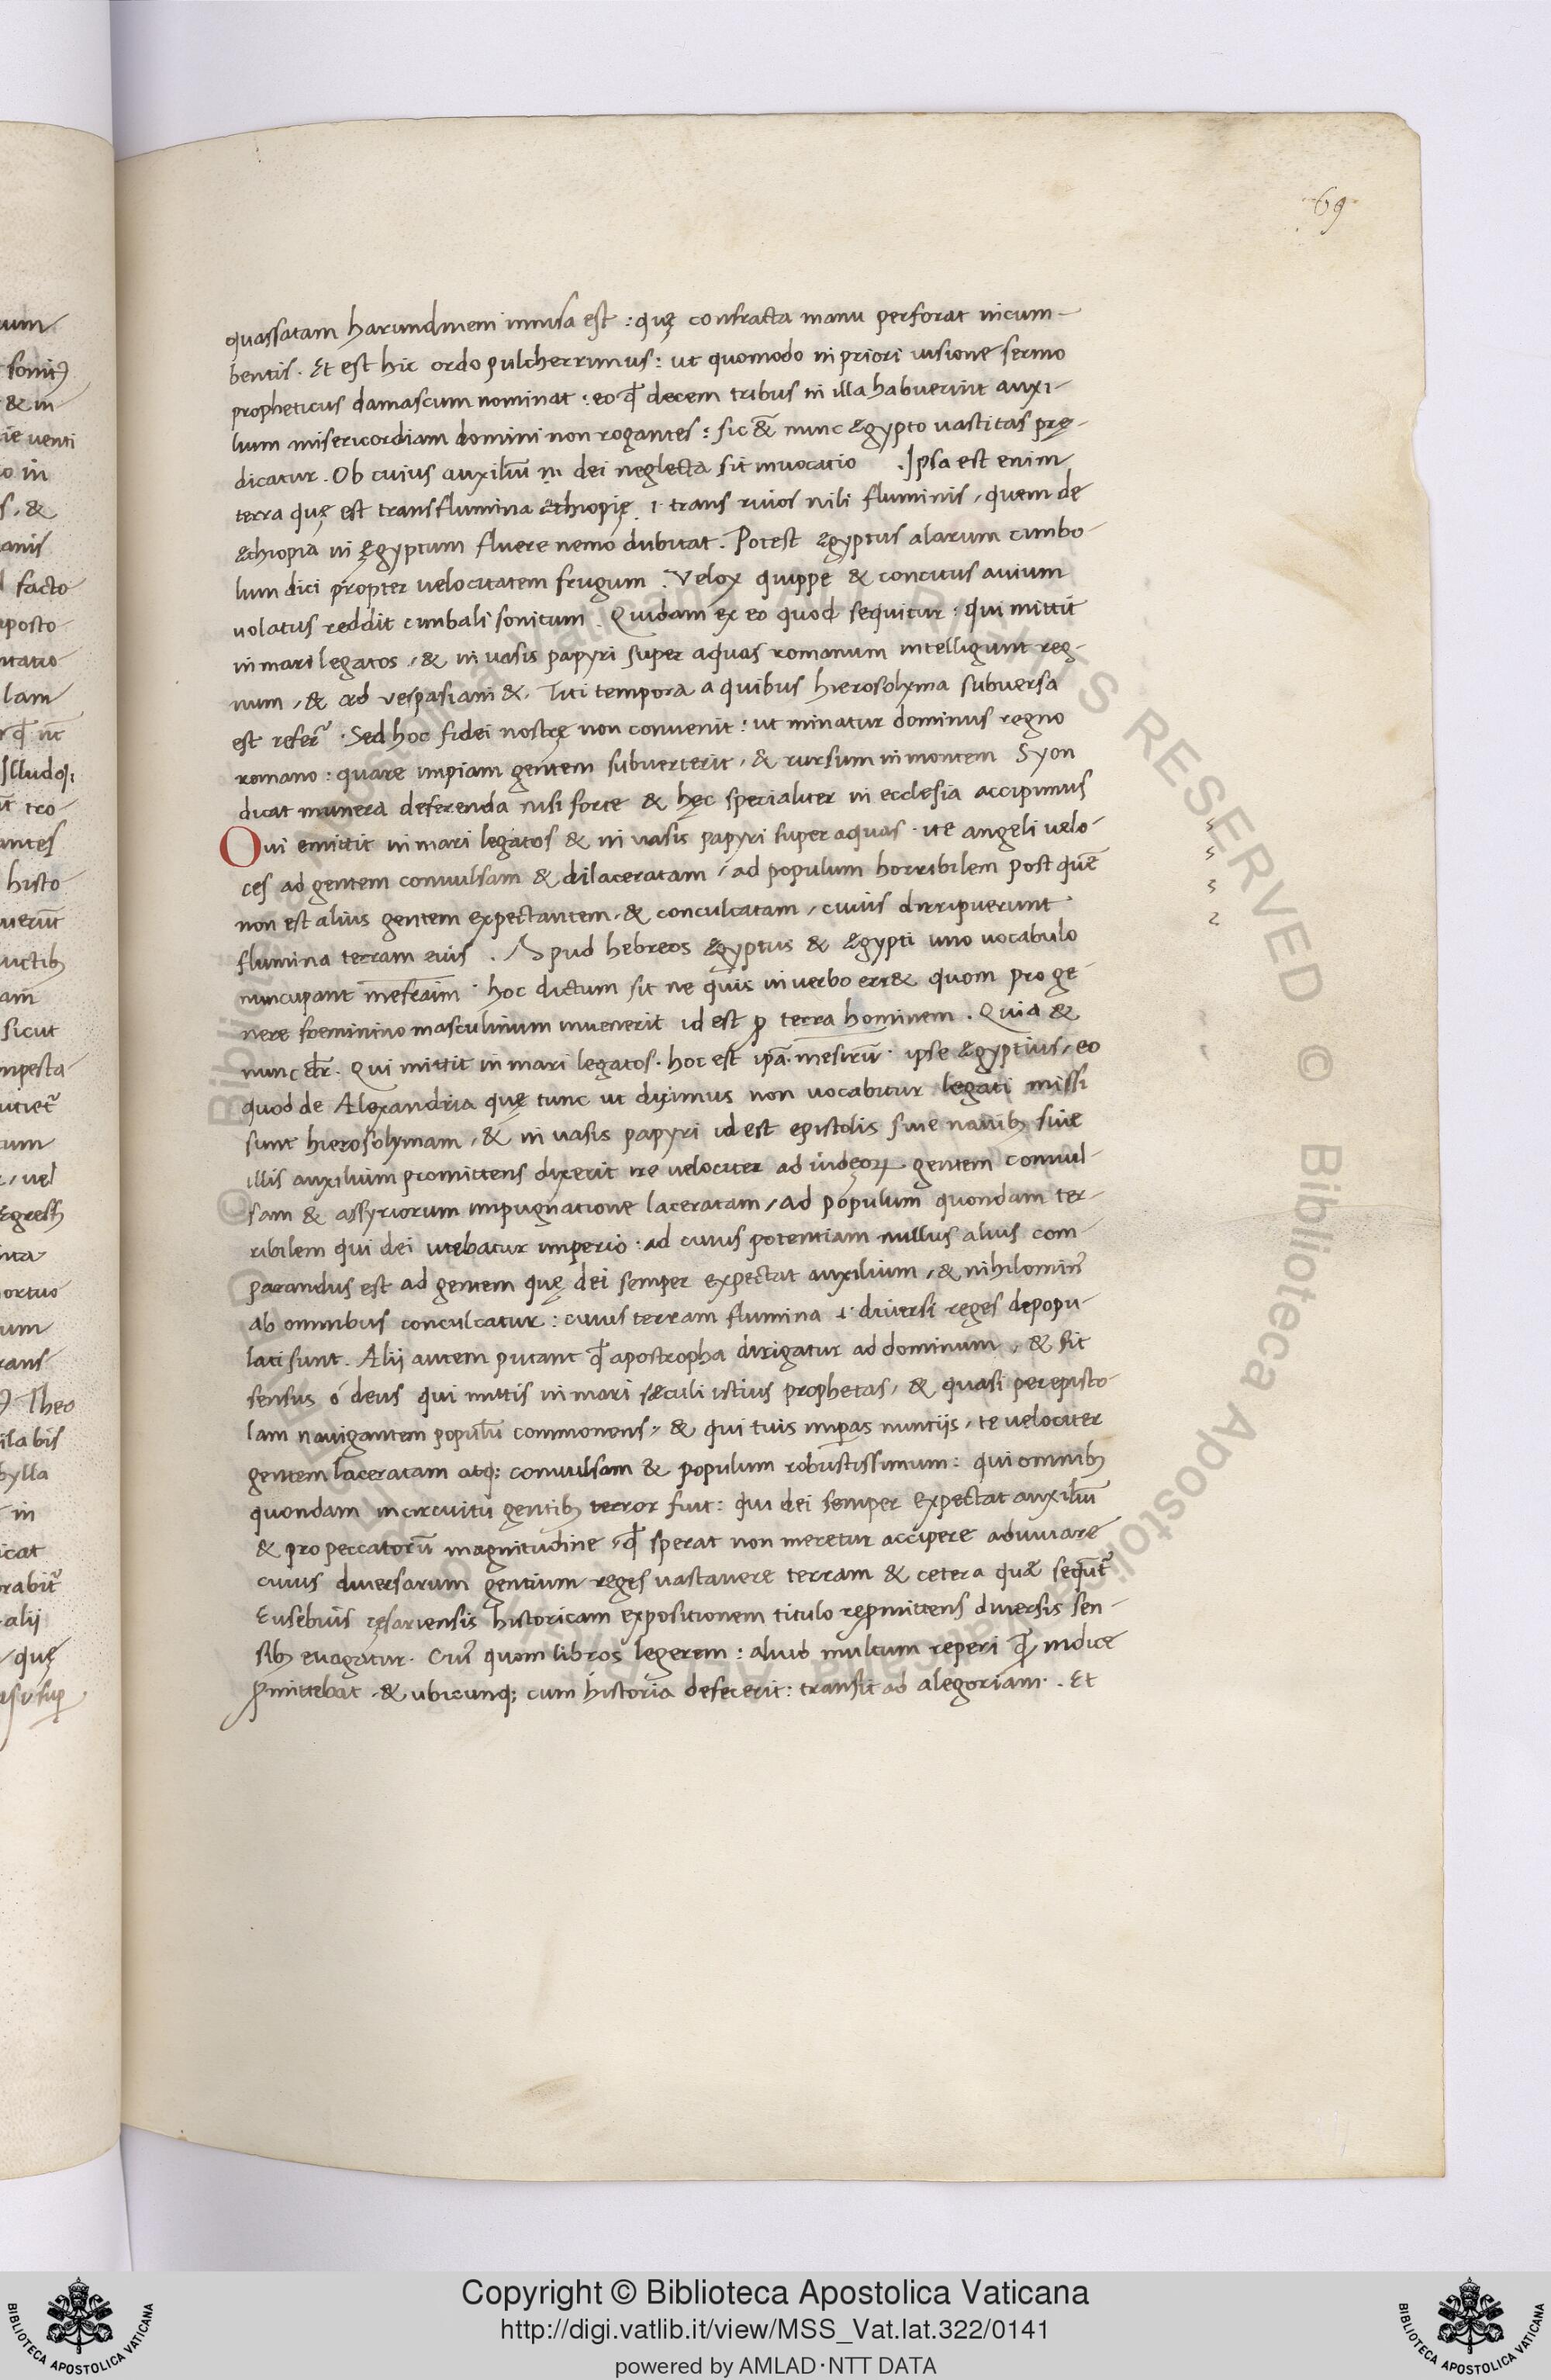 69
quassatam harundinem innisa est : quę confracta manu perforat incum-
bentis . Et est hic ordo pulcherrimus : ut quomodo in priori uisione sermo
propheticus damascum nominat : eo ꝙ decem tribus in illa habuerint auxi-
lium misericordiam domini non rogantes : sic & nunc ęgypto uastitas prę-
dicatur . Ob cuius auxiliū dei neglecta sit inuocatio . Ipsa est enim
terra quę est trans flumina ęthiopię . i . trans riuos nili fluminis , quem de
ęthiopia in ęgyptum fluere nemo dubitat . Potest ęgyptus alarum cimbo-
lum dici propter uelocitatem frugum . Velox quippe & concitus auium
uolatus reddit cimbali sonitum . Quidam ex eo quod sequitur : qui mittit
in mari legatos , & in uasis papyri super aquas romanum intelligunt reg-
num , & ad vespasiani & Titi tempora a quibus hierosolyma subuersa
est referr̃ . Sed hoc fidei nostrę non conuenit : ut minatur dominus regno
romano : quare impiam gentem subuerterit , & rursum in montem Syon
dicat munera deferenda nisi forte & hęc specialiter in ecclesia accipimus
Qui emittit in mari legatos & in uasis papyri super aquas . ite angeli uelo-
ces ad gentem conuulsam & dilaceratam , ad populum horribilem post quē
non est alius gentem expectantem , & conculcatam , cuius dirripuerunt
flumina terram eius . Apud hebreos ęgyptus & ęgypti uno uocabulo
nuncupant mesraim . hoc dictum sit ne quis in uerbo erret quom pro ge-
nere foeminino masculinum inuenerit id est ꝓ terra hominem . Quia &
nunc dr̄ . Qui mittit in mari legatos . hoc est ipā . mesirū . ipse ęgyptius , eo
quod de Alexandria quę tunc ut diximus non uocabitur legati missi
sunt hierosolymam , & in uasis papyri id est epistolis siue nauibꝫ siue
illis auxilium promittens dixerit ire uelociter ad iudęoꝝ gentem conuul-
sam & assyriorum impugnatione laceratam , ad populum quondam ter-
ribilem qui dei utebatur imperio . ad cuius potentiam nullus alius com-
parandus est ad gentem quę dei semper expectat auxilium , & nihilomin᾽
ab omnibus conculcatur : cuius terram flumina .i. diuersi reges depopu-
lati sunt . Alij autem putant ꝙ apostropha dirigatur ad dominum , & sit
sensus ó deus qui mittis in mari sæculi istius prophetas , & quasi per episto-
lam nauigantem populū commonens , & qui tuis imp̲as nuntijs , te uelociter
gentem laceratam atqꝫ conuulsam & populum robustissimum : qui omnibꝫ
quondam in circuitu gentibꝫ terror fuit : qui dei semper expectat auxiliū
& pro peccatorū magnitudine , ꝙ sperat non meretur accipere adiuuare
cuius diuersarum gentium reges uastauere terram & cetera quæ sequūt᾽
Eusebius cęsariensis historicam expositionem titulo repmittens diuersis sen-
sibꝫ euagatur . Cui᾽ quom libros legerem : aliud multum reperi indice
ꝓmittebat . & ubicunqꝫ cum historia defecerit : transit ad alegoriam . Et
Copyright © Biblioteca Apostolica Vaticana
http://digi.vatlib.it/view/MSS_Vat.lat.322/0141
powered by AMLAD·NTT DATA